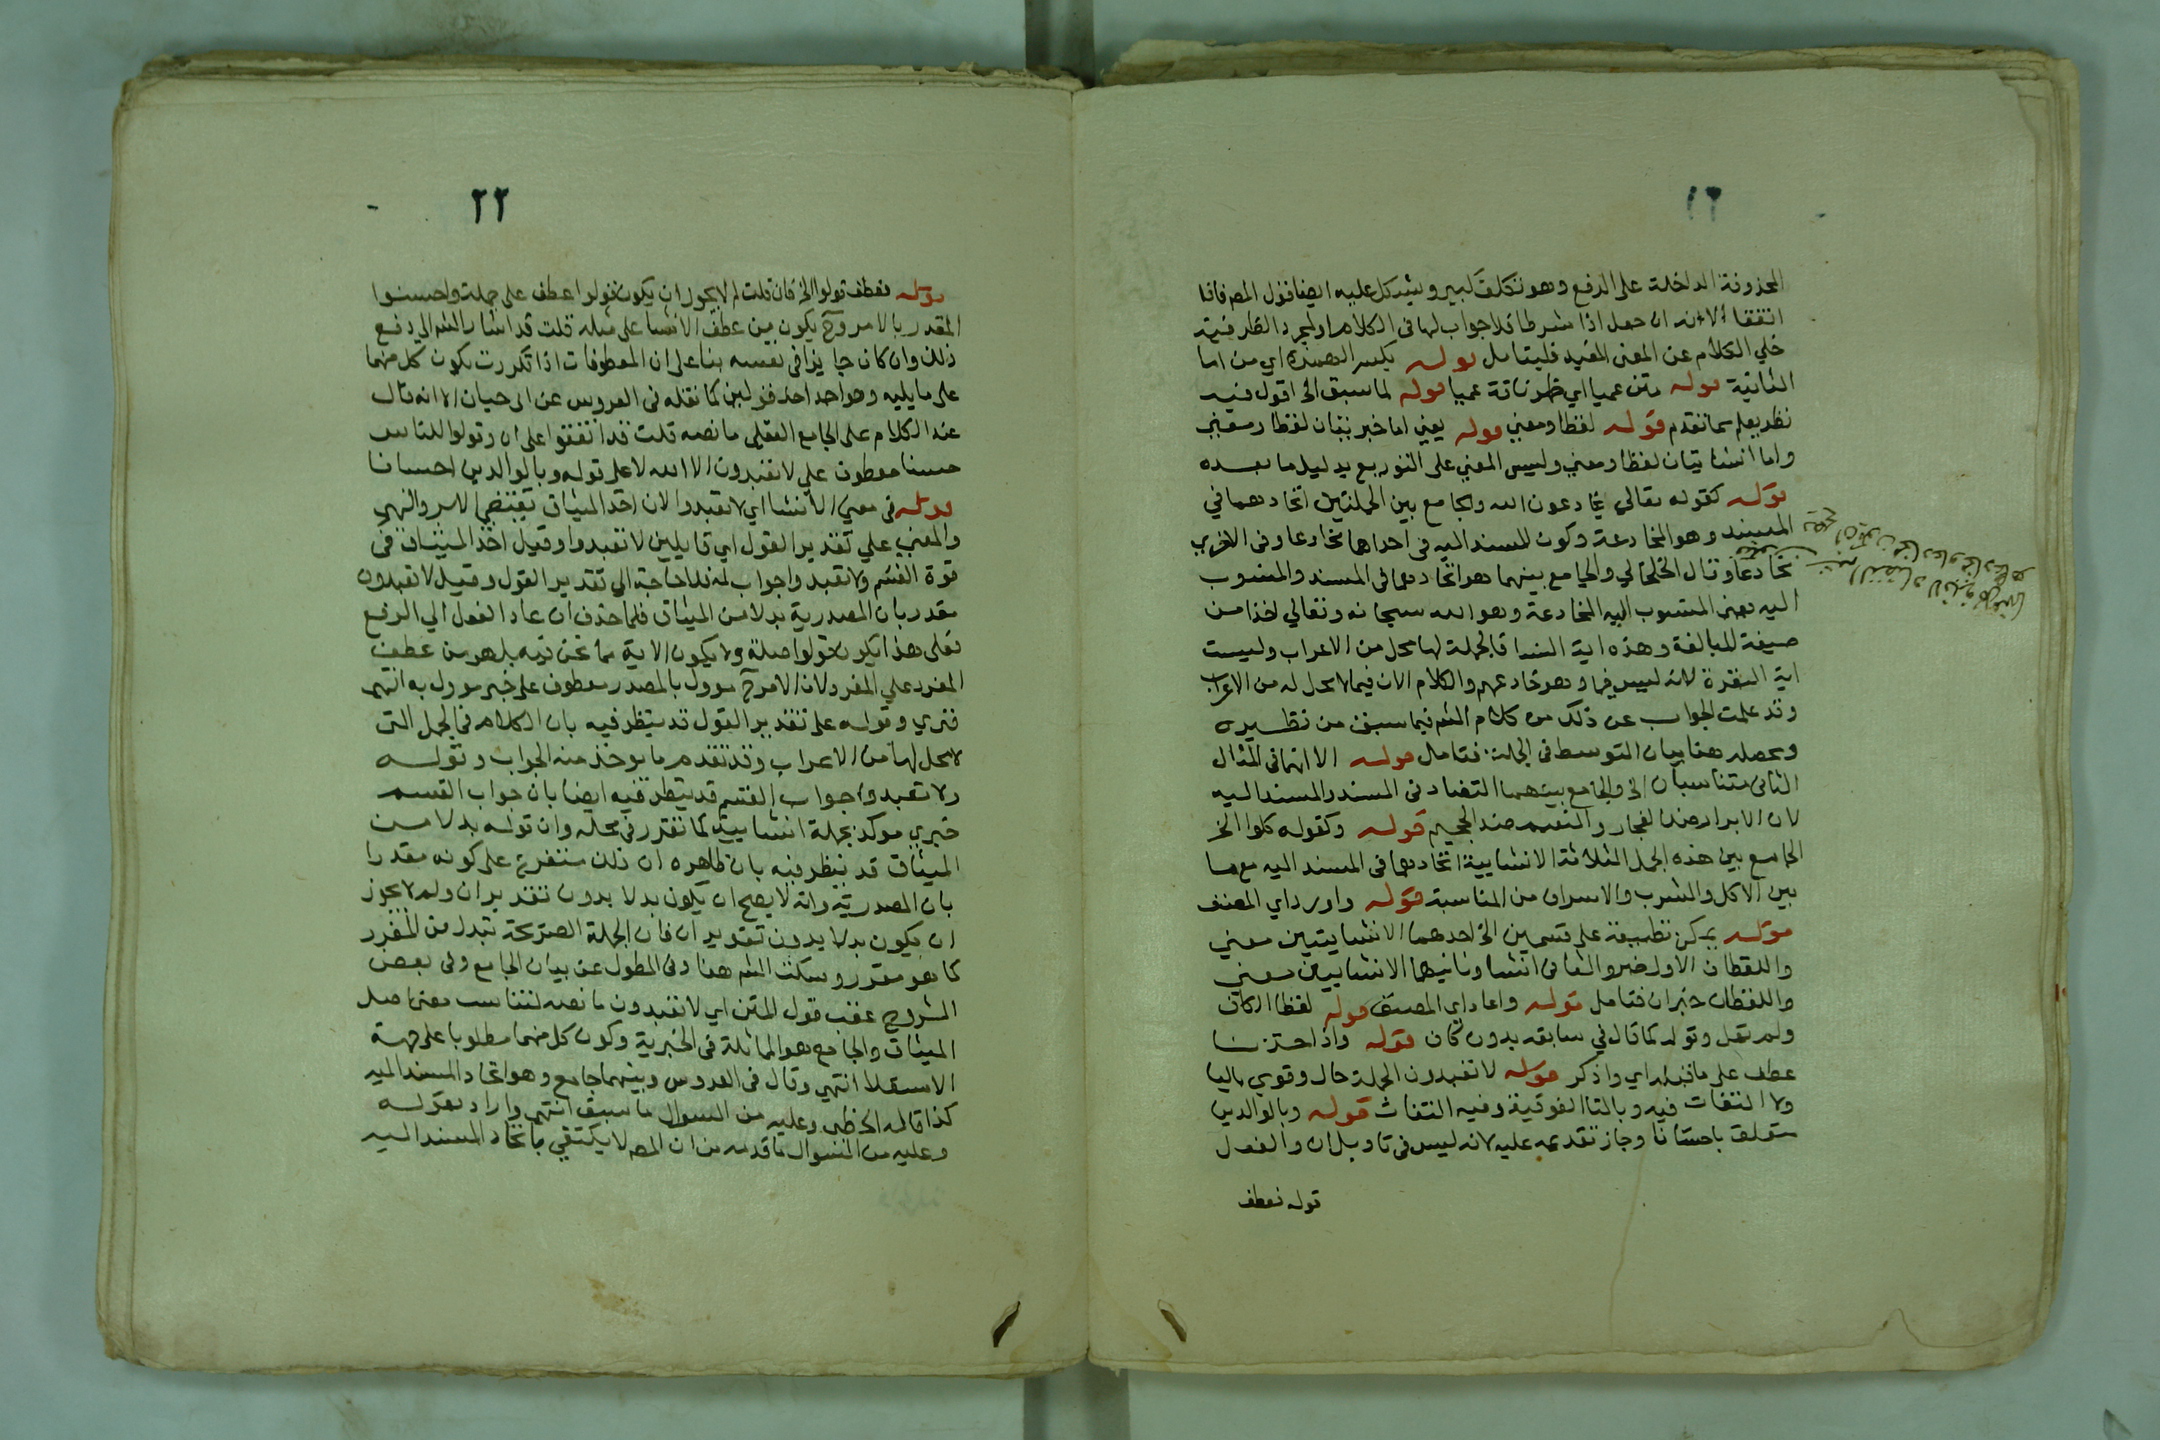 ٢١
المحذوفة الداخلة على الدفع وهو تكلف كبير ويشكل عليه ايضا قول المصـ فاتا
اتفقا الا انه ان جعل اذا شرطا فلا جواب لها في الكلام او لمجرد الظرفية
خلي الكلام عن المعنى المفيد فليتامل قوله بكسر الهمزة اي من اما
الثانية قوله متن عميا اي ظهر ناقة عميا قوله لما سبق الخ اقول فيه
نظر يعلم مما تقدم قوله لفظا ومعنى قوله يعني اما خبريتان لفظا ومعنى
واما انشائيتان لفظا ومعنى وليس المعنى على التوزيع بدليل ما بعده
قوله كقوله تعالى يخادعون الله والجامع بين الجملتين اتحادهما في
المسند وهو المخادعة وكون المسند اليه في احداهما مخادعا وفي الاخرى
مخادعا وقال الخلخالي والجامع بينهما هو اتحادهما في المسند والمنسوب
اليه يعني المنسوب اليه المخادعة وهو الله سبحانه وتعالى اخذا من
صيغة المبالغة وهذه اية النسا فالجملة لها محل من الاعراب وليست
اية البقرة لانه ليس فيها وهو خادعهم والكلام الان فيما لا محل له من الاعراب
وقد علمت الجواب عن ذلك من كلام الشـ فيما سبق من نظيره
ومحصله هنا بيان التوسط في الجملة فتامل قوله الا انهما في المثال
الثاني متناسبان الخ والجامع بينهما التضاد في المسند والمسند اليه
لان الابرار ضد الفجار والنعيم ضد الجحيم قوله وكقوله كلوا الخ
الجامع بين هذه الجمل الثلاثة الانشايية اتحادهما في المسند اليه مع ما
بين الاكل والشرب والاسراف من المناسبة قوله واورد اي المصنف
قوله يمكن تطبيقه على قسمين الخ احدهما الانشايتين معنى
واللفظان الاول خبر والثاني انشا وثانيهما الانشاييتين معنى
واللفظان خبران فتامل قوله واعاد اي المصنف قوله لفظا الكاف
ولم يقل وقوله كما قال في سابقه بدون كاف قوله واذ اخذنا
عطف على ما قبله اي واذكر قوله لا تعبدون الجملة حال وقوي باليا
ولا التفات فيه وبالتا الفوقية وفيه التفات قوله وبالوالدين
متعلق باحسانا وجاز تقديمه عليه لانه ليس في تاويل ان والفعل
قوله فعطف
٢٢
قوله فعطف قولوا الخ فان قلت لم لا يجوز ان يكون قولوا عطف على جملة واحسنوا
المقدر بالامر وح يكون من عطف الانشا على مثله قلت قد اشار الشـ الى دفع
ذلك وان كان جايزا في نفسه بنا على ان المعطوفات اذا تكررت يكون كل منهما
على ما يليه وهو احد احد قولين كما نقله في العروس عن ابي حيان الا انه قال
عند الكلام على الجامع العقلي ما نصه قلت قد اتفقوا على ان وقولوا للناس
حسنا معطوف على لا تعبدون الا الله لا على قوله وبالوالدين احسانا
قوله في معنى الانشا اي لا تعبدوا لان اخذ الميثاق يقتضي الامر والنهي
والمعنى على تقدير القول اي قايلين لا تعبدوا وقيل اخذ الميثاق في
قوة القسم ولا تعبدوا جواب له فلا حاجة الى تقدير القول وقيل لا تعبدون
مقدر بان المصدرية بدلا من الميثاق فلما حذف ان عاد الفعل الى الرفع
فعلى هذا يكون قولوا صلة ولا يكون الاية مما نحن فيه بل هو من عطف
المفرد على المفرد لان الامر ح موول بالمصدر معطوف على خبر موول به انتهى
فنري وقوله على تقدير القول قد ينظر فيه بان الكلام في الجمل التي
لا محل لها من الاعراب وقد تقدم ما يوخذ منه الجواب وقوله
ولا تعبدوا جواب القسم قد ينظر فيه ايضا بان جواب القسم
خبري موكد بجملة انشايية كما تقرر في محله وان قوله بدلا من
الميثاق قد ينظر فيه بان ظاهره ان ذلك متفرع على كونه مقدرا
بان المصدرية وانه لا يصح ان يكون بدلا بدون تقدير ان ولم لا يجوز
ان يكون بدلا بدون تقدير ان فان الجملة الصريحة تبدل من المفرد
كما هو مقرر وسكت الشـ هنا وفي المطول عن بيان الجامع وفي بعض
الشروح عقب قول المتن اي لا تعبدون ما نصه لتناسب معنى اصل
الميثاق والجامع هو المماثلة في الخبرية وكون كل منهما مطلوبا على جهة
الاستعلا انتهى وقال في العروس وبينهما جامع وهو اتحاد المسند اليه
كذا قاله الخطيبي وعليه من السوال ما سبق انتهى واراد بقوله
وعليه من السوال ما قدمه من ان المصـ لا يكتفي باتحاد المسند اليه